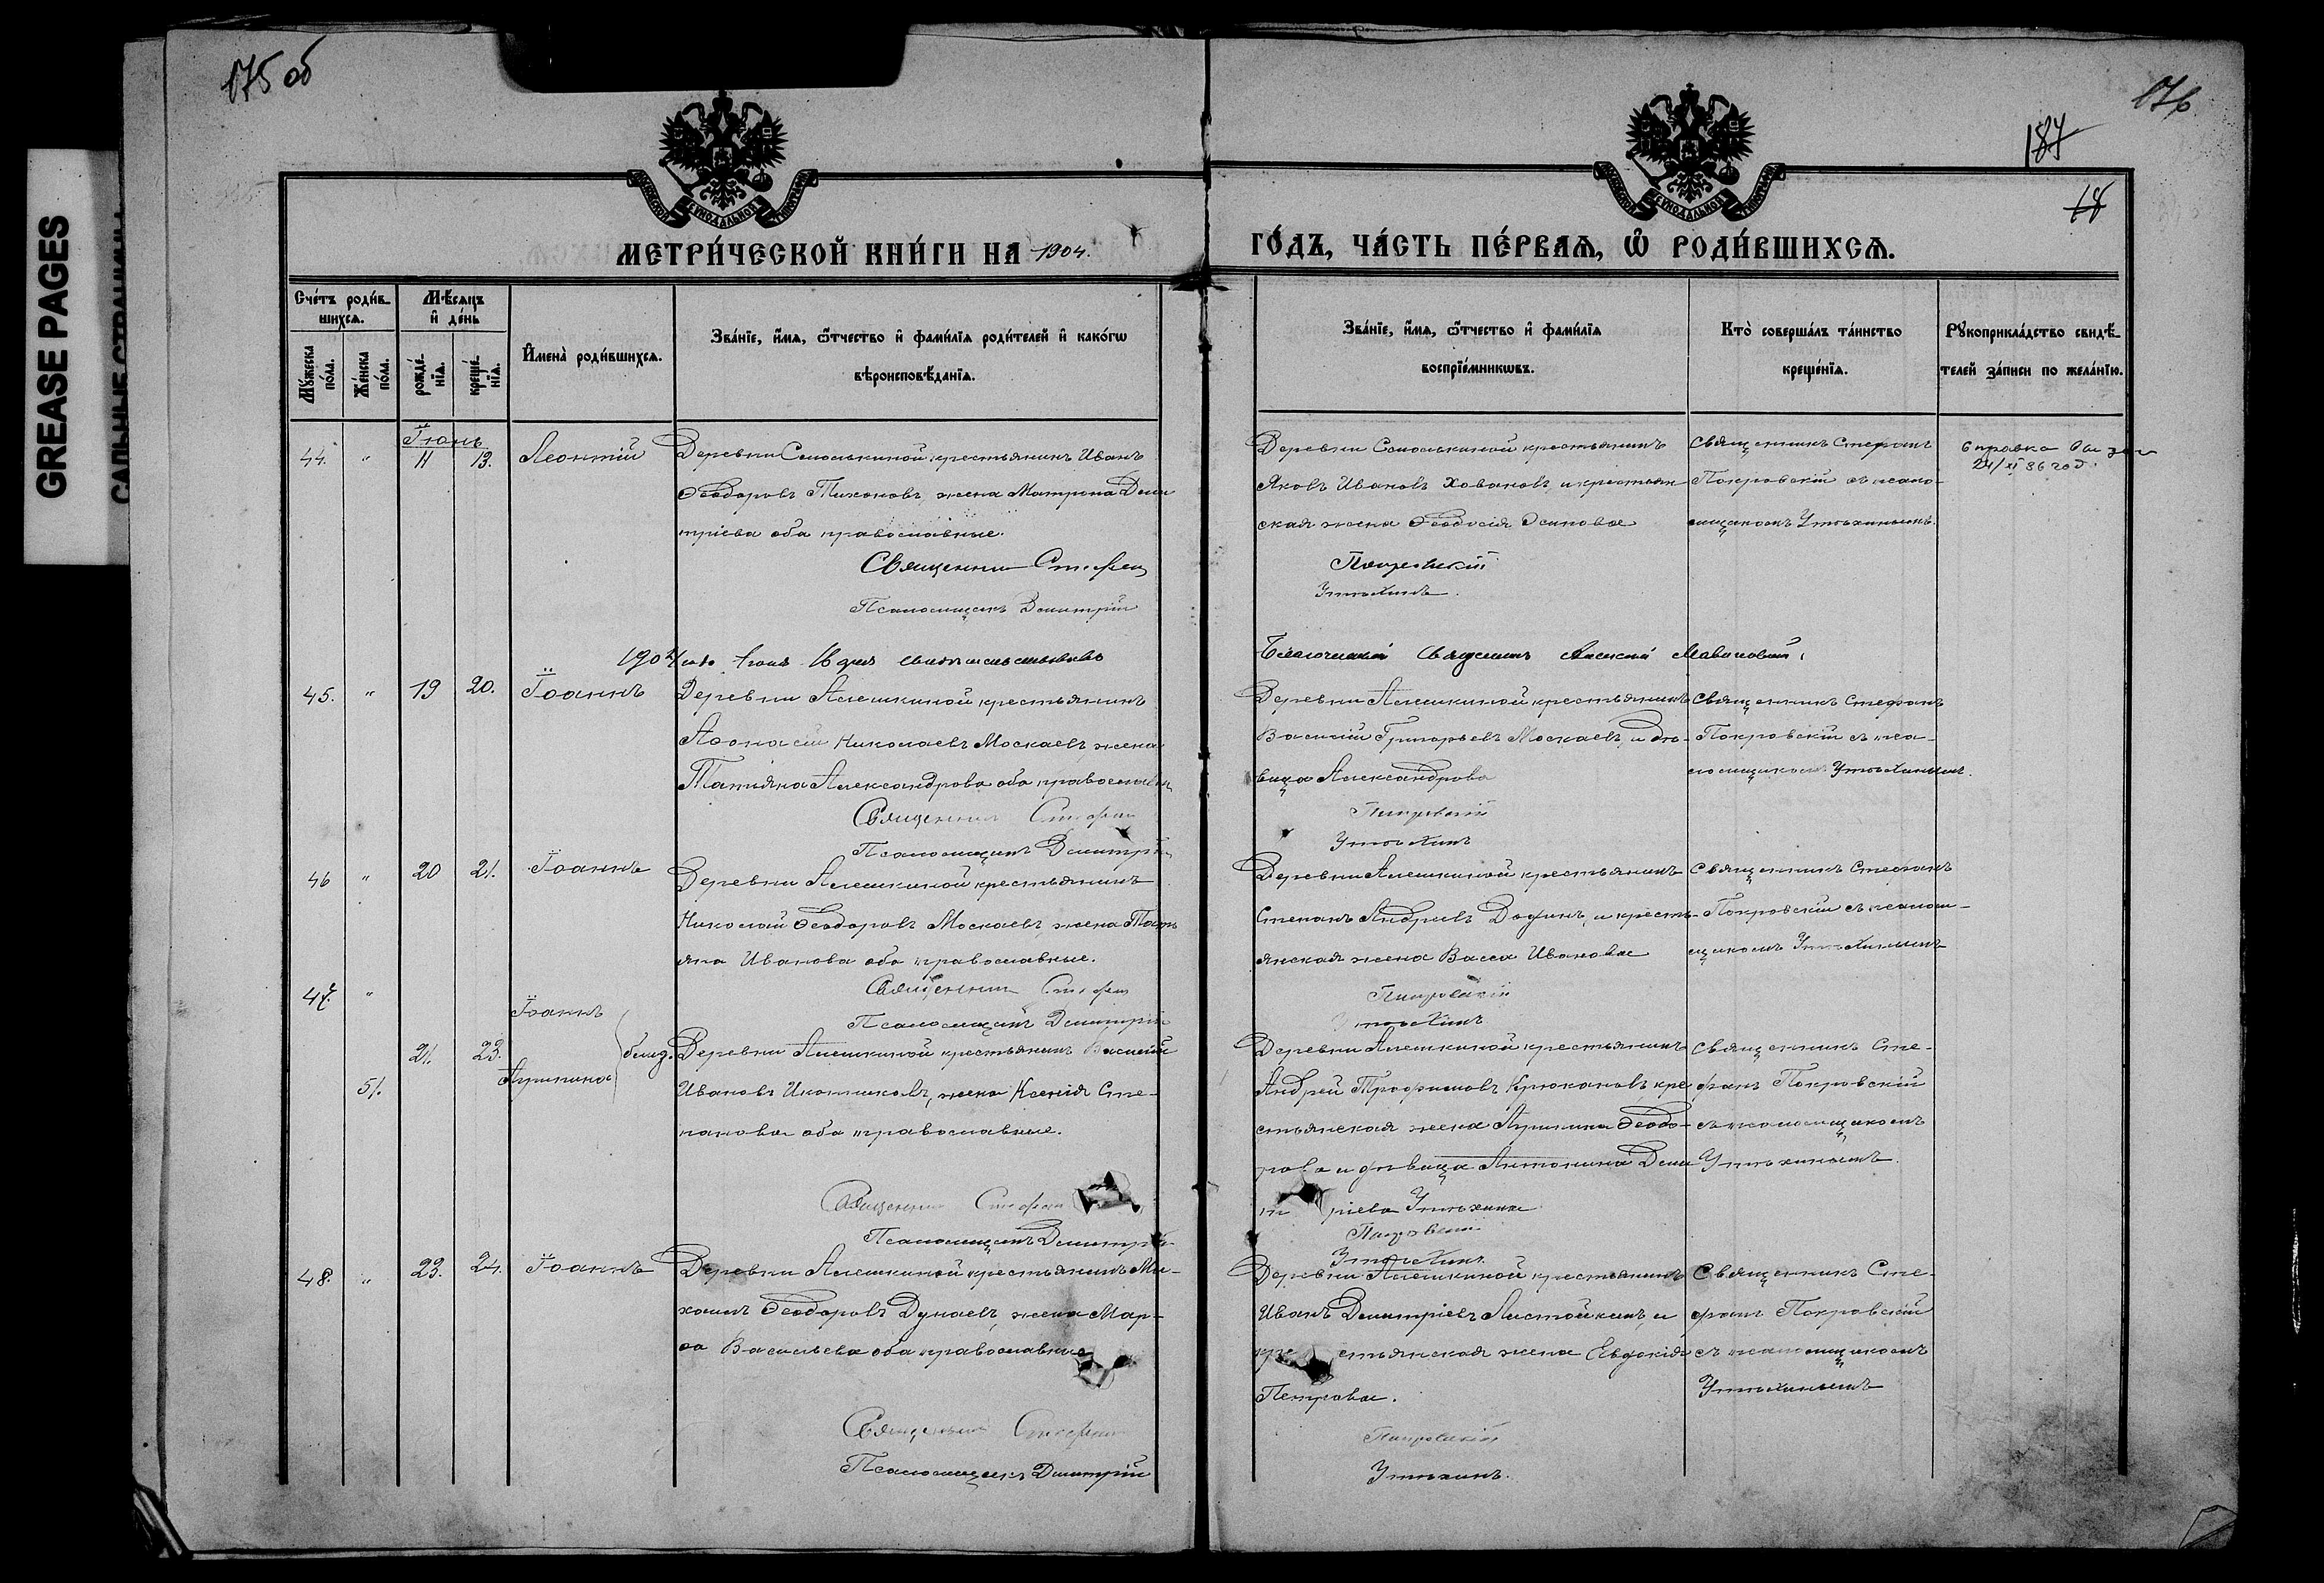 GREASE PAGES
175 об
176
187
18
МЕТРИ́ЧЕСКОЙ КНИ́ГИ НА 1904.
ГО́ДЪ, ЧА́СТЬ ПЕ́РВАѦ, Ѿ РОДИ́ВШИХСѦ.
Сче́тъ роди́в-
шихсѧ.
Мꙋ́жеска по́ла.
Же́нска по́ла.
Мѣ́сѧцъ
и҆ де́нь
рожде́-
нїѧ.
креще́-
нїѧ.
И҆мена̀ роди́вшихсѧ.
Зва́нїе, и҆́мѧ, ѻ҆́тчество и҆ фами́лїѧ роди́телей и҆ како́гѡ
вѣроисповѣ́данїѧ.
Зва́нїе, и҆́мѧ, ѻ҆́тчество и҆ фами́лїѧ
воспрїе́мникѡвъ.
Кто̀ соверша́лъ та́инство
креще́нїѧ.
Рꙋкоприкла́дство свидѣ́-
телей за́писи по жела́нїю.
Іюнь
44. " 11 13. Леонтій
Деревни крестьянинъ Иванъ
Ѳеодоровъ Тихоновъ, жена Матрона Дими
тріева оба православные.
Священник Стефан
Псаломщикъ Димитрій
Деревни крестьянинъ
Яковъ Ивановъ Ховановъ, и крестьян
ская жена Ѳеодосія Осипова
Покровскій
Утѣхинъ.
Священникъ Стефанъ
Покровскій съ псало-
мщикомъ Утѣхинымъ.
Справка
24/XI 86 год.
1904 Іюня 16 дня свидѣтельствовалъ
Благочинный Священникъ Алексій
45. " 19 20. Іоаннъ
Деревни Алешкиной крестьянинъ
Аѳонасій Николаевъ Москаевъ, жена
Татьяна Александрова оба православн
Священник Стефан
Псаломщикъ Димитрій
Деревни Алешкиной крестьянинъ
Василій Григорьевъ Москаевъ, и дѣ-
вица Александрова
Покровскій
Утѣхинъ
Священникъ Стефанъ
Покровскій съ пса-
ломщикомъ Утѣхинымъ.
46 " 20 21. Іоаннъ
Деревни Алешкиной крестьянинъ
Николай Ѳеодоровъ Москаевъ, жена Тать
яна Иванова оба православные.
Священник Стефан
Псаломщикъ Димитрій
Деревни Алешкиной крестьянинъ
Степанъ Андреевъ и кресть-
янская жена Васса Иванова
Покровскій
Утѣхинъ
Священникъ Стефанъ
Покровскій съ псалом-
щикомъ Утѣхинымъ
47. " Іоаннъ
21. 23. близ.
51. Агрипина
Деревни Алешкиной крестьянинъ Василій
Ивановъ жена Ксенія Сте-
панова оба православные.
Священник Стефан
Псаломщикъ Димитрій
Деревни Алешкиной крестьянинъ
Андрей Трофимовъ Крюкановъ, кре
стьянская жена Агрипина Ѳеодо-
рова и дѣвица Антонина Дими
т ріева Утѣхина
Покровскій
Утѣхинъ
Священникъ Сте-
фанъ Покровскій
съ псаломщикомъ
Утѣхинымъ.
48. " 23. 24. Іоаннъ
Деревни Алешкиной крестьянинъ Ми-
хаилъ Ѳеодоровъ Дунаевъ, жена Мар-
ѳа Васильева оба православные
Священник Стефан
Псаломщикъ Димитрій
Деревни Алешкиной крестьянинъ
Иванъ Димитріевъ Листойкинъ, и
кре стьянская жена Евдокія
Петрова.
Покровскій
Утѣхинъ.
Священникъ Сте-
фанъ Покровскій
съ псаломщикомъ
Утѣхинымъ